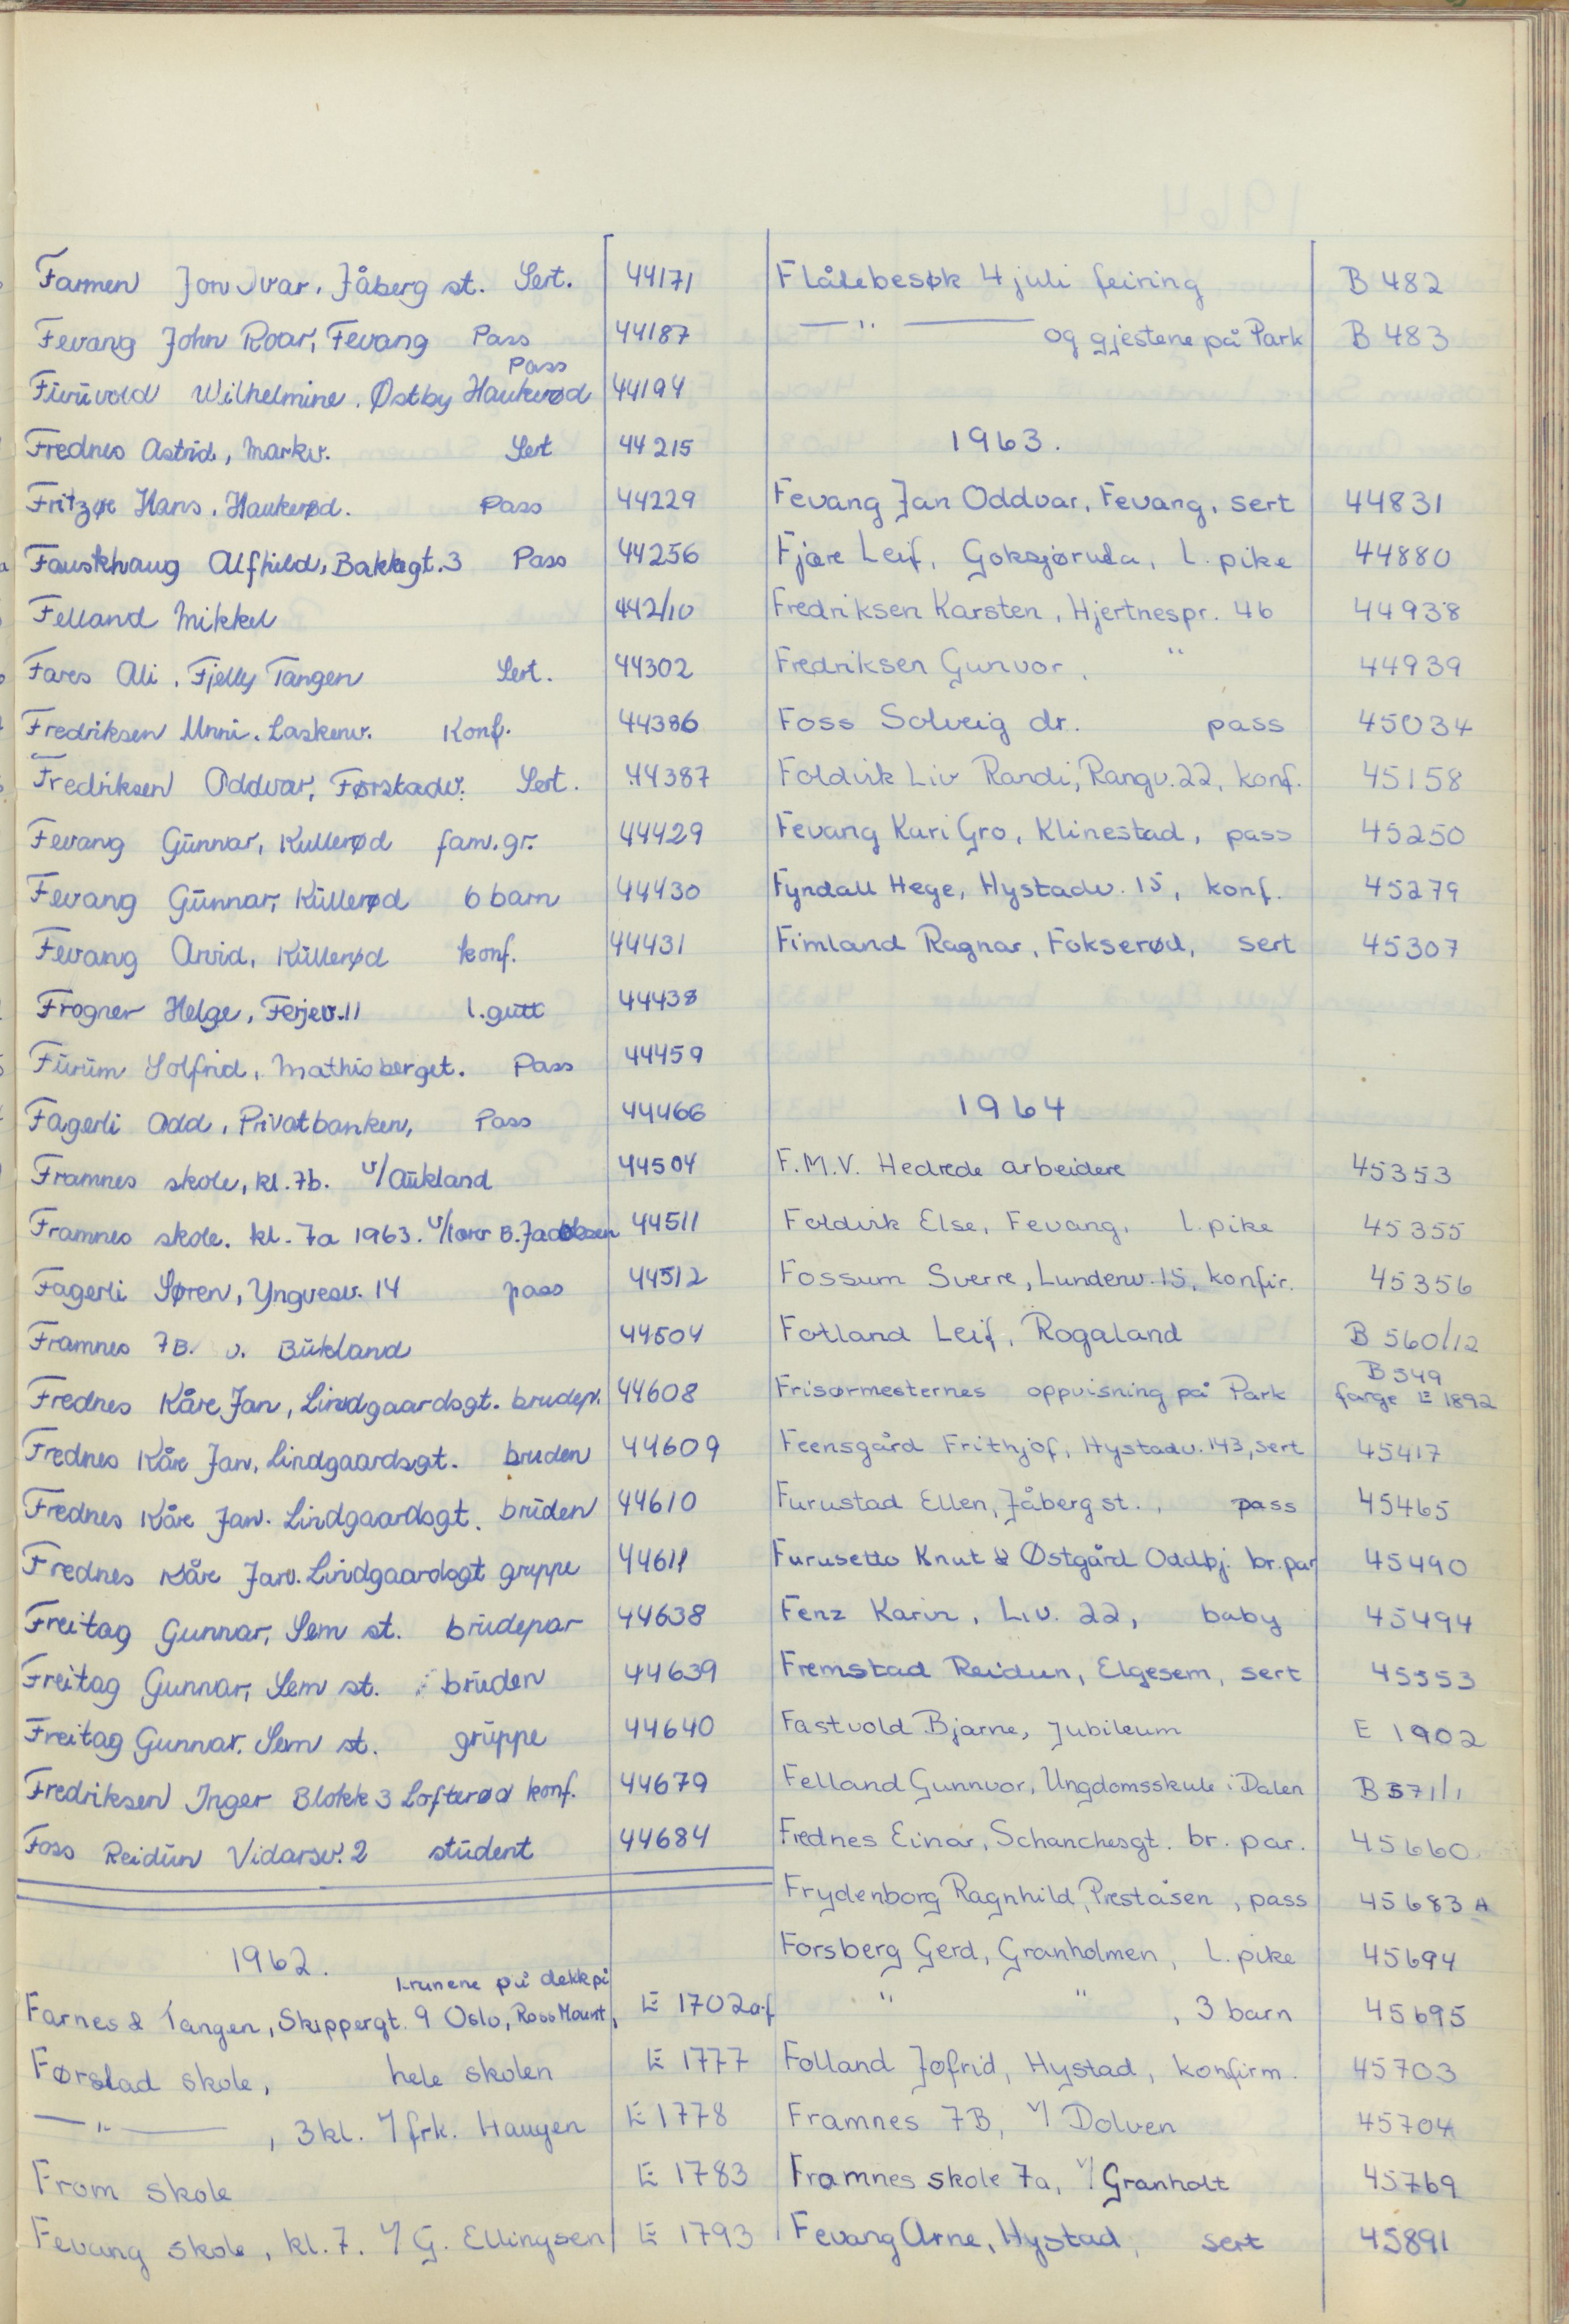 Farmen Jon Ivar, Jåberg st. Sert. 44171
Fevang John Roar, Fevang Pass 44187
Pass
Furuvold Wilhelmine. Østby Haukerød 44194
Frednes Astrid, Markv. Sert 44215
Fritzøe Hans. Haukerød. Pass 44229
Fauskhaug Alfhild, Bakkegt. 3 Pass 44256
Felland Mikkel 442/10
Fares Ali. Fjelly Tangen Sert. 44302
Fredriksen Unni. Laskenv. Konf. 44386
Fredriksen Oddvar, Førstadv. Sert. 44387
Fevang Gunnar, Kullerød fam. gr. 44429
Fevang Gunnar, Kullerød 6 barn 44430
Fevang Arvid, Kullerød konf. 44431
Frogner Helge, Ferjev. 11 l. gutt 44438
Furum Solfrid, Mathisberget. Pass 44459
Fagerli Odd, Privatbanken, Pass 44466
Framnes skole, kl. 7b. v/Aukland 44504
Framnes skole. kl. 7a 1963. B. Jacobsen 44511
Fagerli Søren, Yngvesv. 14 pass 44512
Framnes 7B. v. Bukland 44504
Frednes Kåre Jan, Lindgaardsgt. brudep. 44608
Frednes Kåre Jan, Lindgaardsgt. bruden 44609
Frednes Kåre Jan. Lindgaardsgt. bruden 44610
Frednes Kåre Jan. Lindgaardsgt gruppe 44611
Freitag Gunnar, Sem st. brudepar 44638
Freitag Gunnar, Sem st. bruden 44639
Freitag Gunnar. Sem st. gruppe 44640
Fredriksen Inger Blokk 3 Lofterød konf. 44679
Foss Reidun Vidarsv. 2 student 44684
1962.
kranene på dekk på
Farnes & Tangen, Skippergt. 9 Oslo, Ross Mount, E 1702a-f
Førstad skole, hele skolen E 1777
—"— , 3 kl. v/ frk. Haugen E 1778
From skole E 1783
Fevang skole, kl. 7. v/ G. Ellingsen E 1793
Flåtebesøk 4 juli feiring B 482
—"— og gjestene på Park B 483
1963.
Fevang Jan Oddvar, Fevang, sert 44831
Fjære Leif, Goksjøruta, l. pike 44880
Fredriksen Karsten, Hjertnespr. 4b 44938
Fredriksen Gunvor, " 44939
Foss Solveig dr. pass 45034
Foldvik Liv Randi, Rangv. 22, konf. 45158
Fevang Kari Gro, Klinestad, pass 45250
Fyndall Hege, Hystadv. 15, konf. 45279
Fimland Ragnar, Fokserød, sert 45307
1964
F.M.V. Hedrede arbeidere 45353
Foldvik Else, Fevang, l. pike 45355
Fossum Sverre, Lundenv. 15, konfir. 45356
Fotland Leif, Rogaland B 560/12
B 549
Frisørmesternes oppvisning på Park farge E 1892
Feensgård Frithjof, Hystadv. 143, sert 45417
Furustad Ellen, Jåberg st., pass 45465
Furusetto Knut & Østgård Oddbj. br. par 45490
Fenz Karin, Liv. 22, baby 45494
Fremstad Reidun, Elgesem, sert 45553
Fastvold Bjarne, Jubileum E 1902
Felland Gunnvor, Ungdomsskule i Dalen B 571/1
Frednes Einar, Schanchesgt. br. par. 45660
Frydenborg Ragnhild, Preståsen, pass 45683 A
Forsberg Gerd, Granholmen, l. pike 45694
" " , 3 barn 45695
Folland Jofrid, Hystad, konfirm. 45703
Framnes 7B, v/ Dolven 45704
Framnes skole 7a, v/ Granholt 45769
Fevang Arne, Hystad, sert 45891